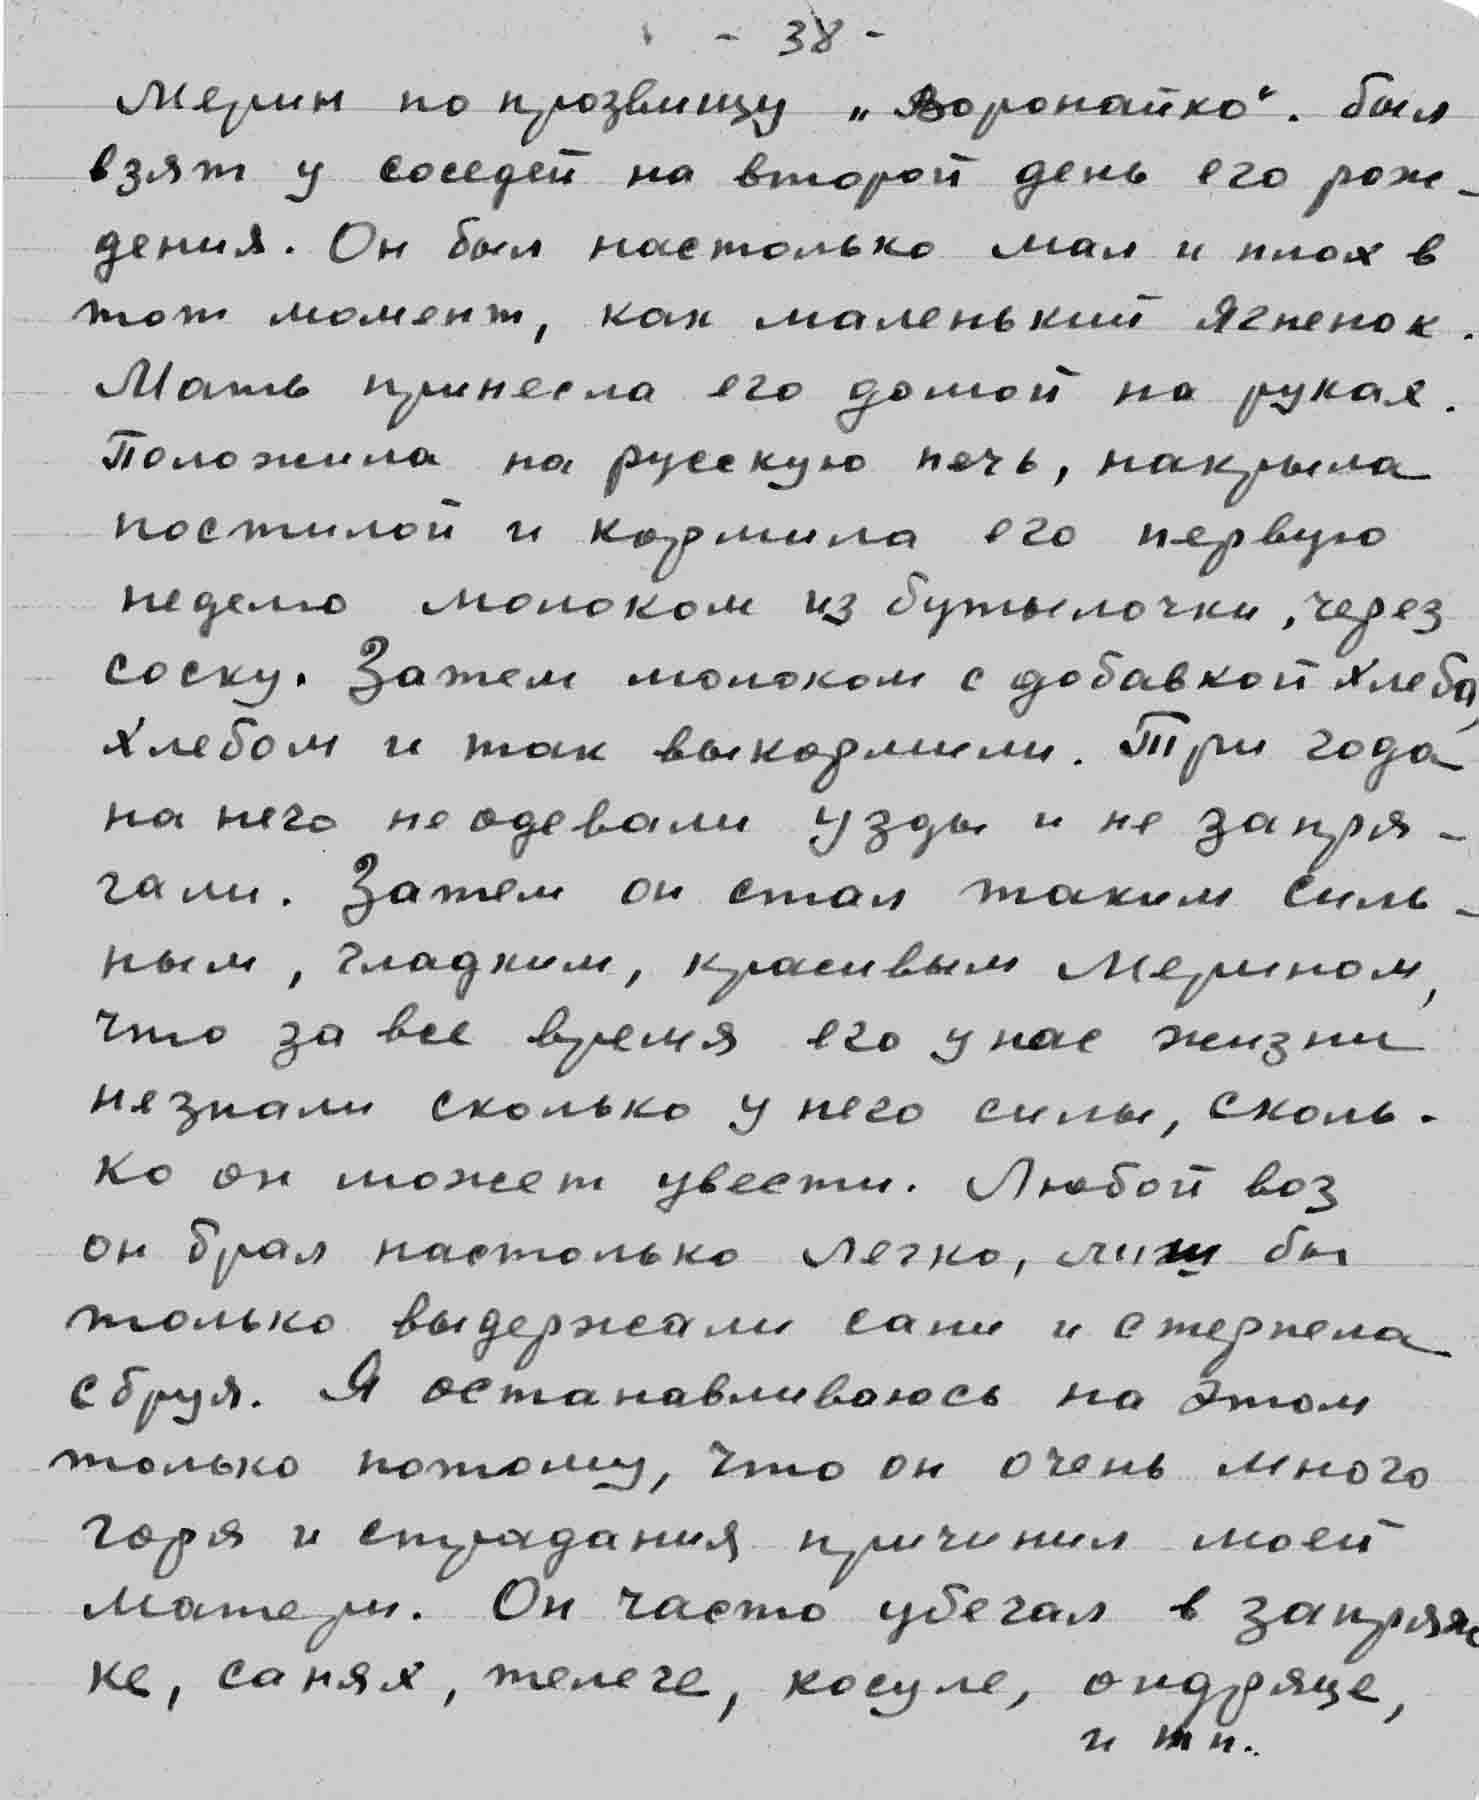 - 38 -
Мерин по прозвищу „Воронайко“. был
взят у соседей на второй день его рож-
дения. Он был настолько мал и плох в
тот момент, как маленький ягненок.
Мать принесла его домой на руках.
Положила на русскую печь, накрыла
постилой и кормила его первую
неделю молоком из бутылочки, через
соску. Затем молоком с добавкой хлеба,
хлебом и так выкормили. Три года
на него не одевали узды и не запря-
гали. Затем он стал таким силь-
ным, гладким, красивым мерином,
что за все время его у нас жизни
незнали сколько у него силы, сколь-
ко он может увести. Любой воз
он брал настолько легко, лиш бы
только выдержали сани и стерпела
сбруя. Я останавливаюсь на этом
только потому, что он очень много
горя и страдания причинил моей
матери. Он часто убегал в запряж
ке, санях, телеге, косуле, ондряце,
и тп..